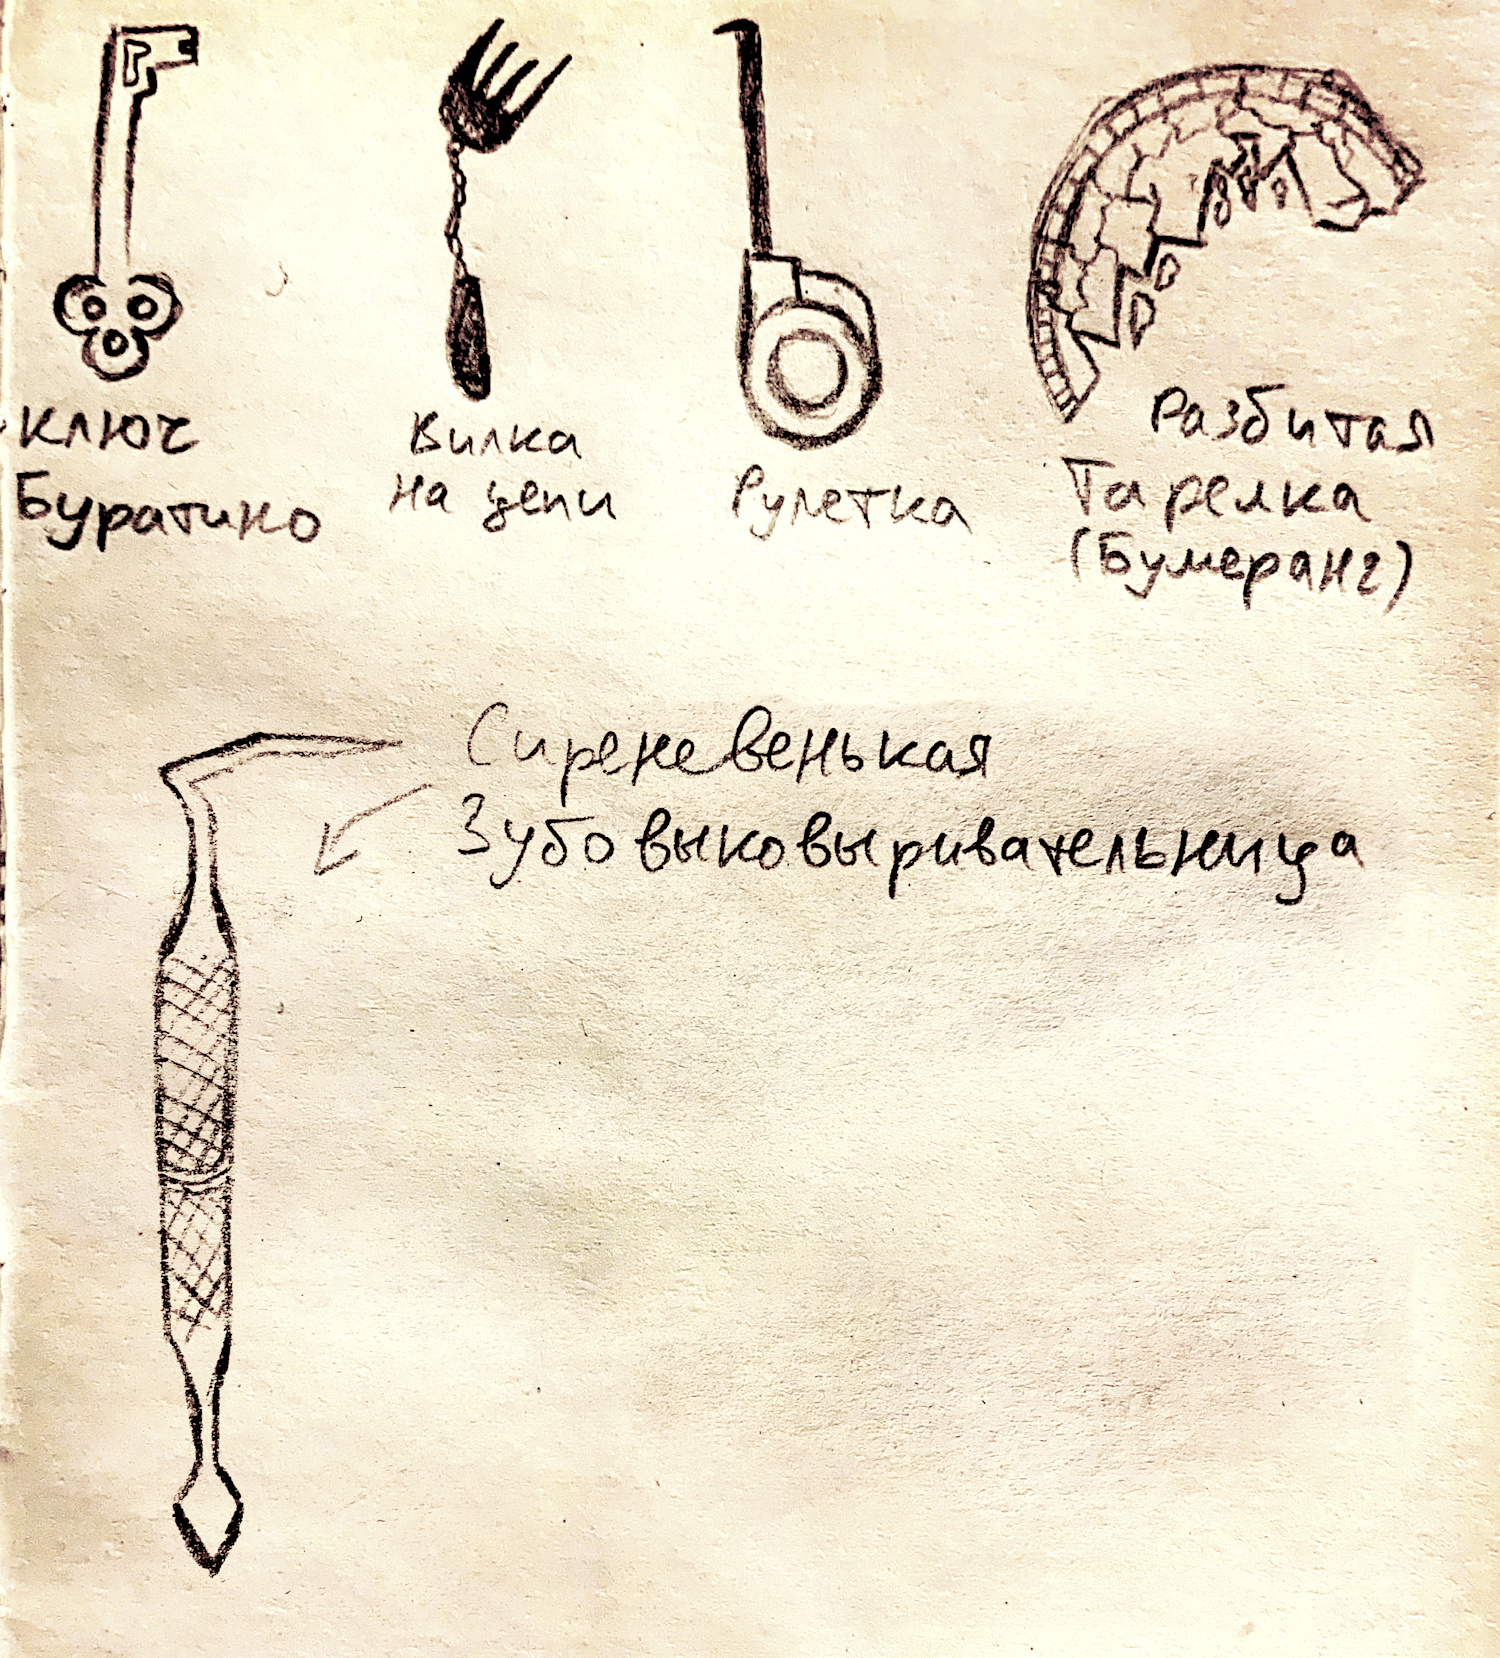 Ключ
Буратино
Вилка
на цепи
Рулетка
Разбитая
Тарелка
(Бумеранг)
Сиреневенькая
Зубовыковыривательница